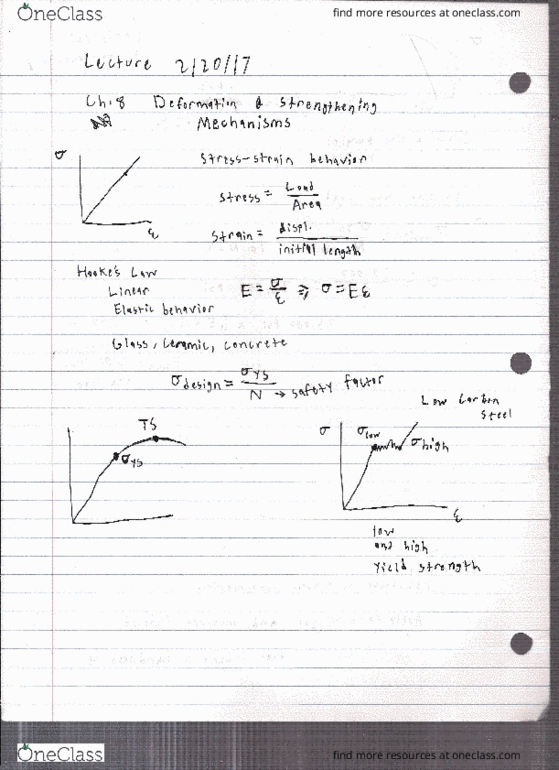 OneClass
find more resources at oneclass.com
Lecture 2/20/17
Ch.8 Deformation & Strengthening
Mechanisms
σ
ε
Stress-strain behavior
Stress = Load / Area
Strain = displ. / initial length
Hooke's Law
Linear
Elastic behavior
E = σ/ε ⇒ σ = Eε
Glass, ceramic, concrete
σdesign = σys / N → safety factor
Low Carbon
Steel
TS
σys
σ
σlow
σhigh
ε
low
and high
Yield strength
OneClass
find more resources at oneclass.com